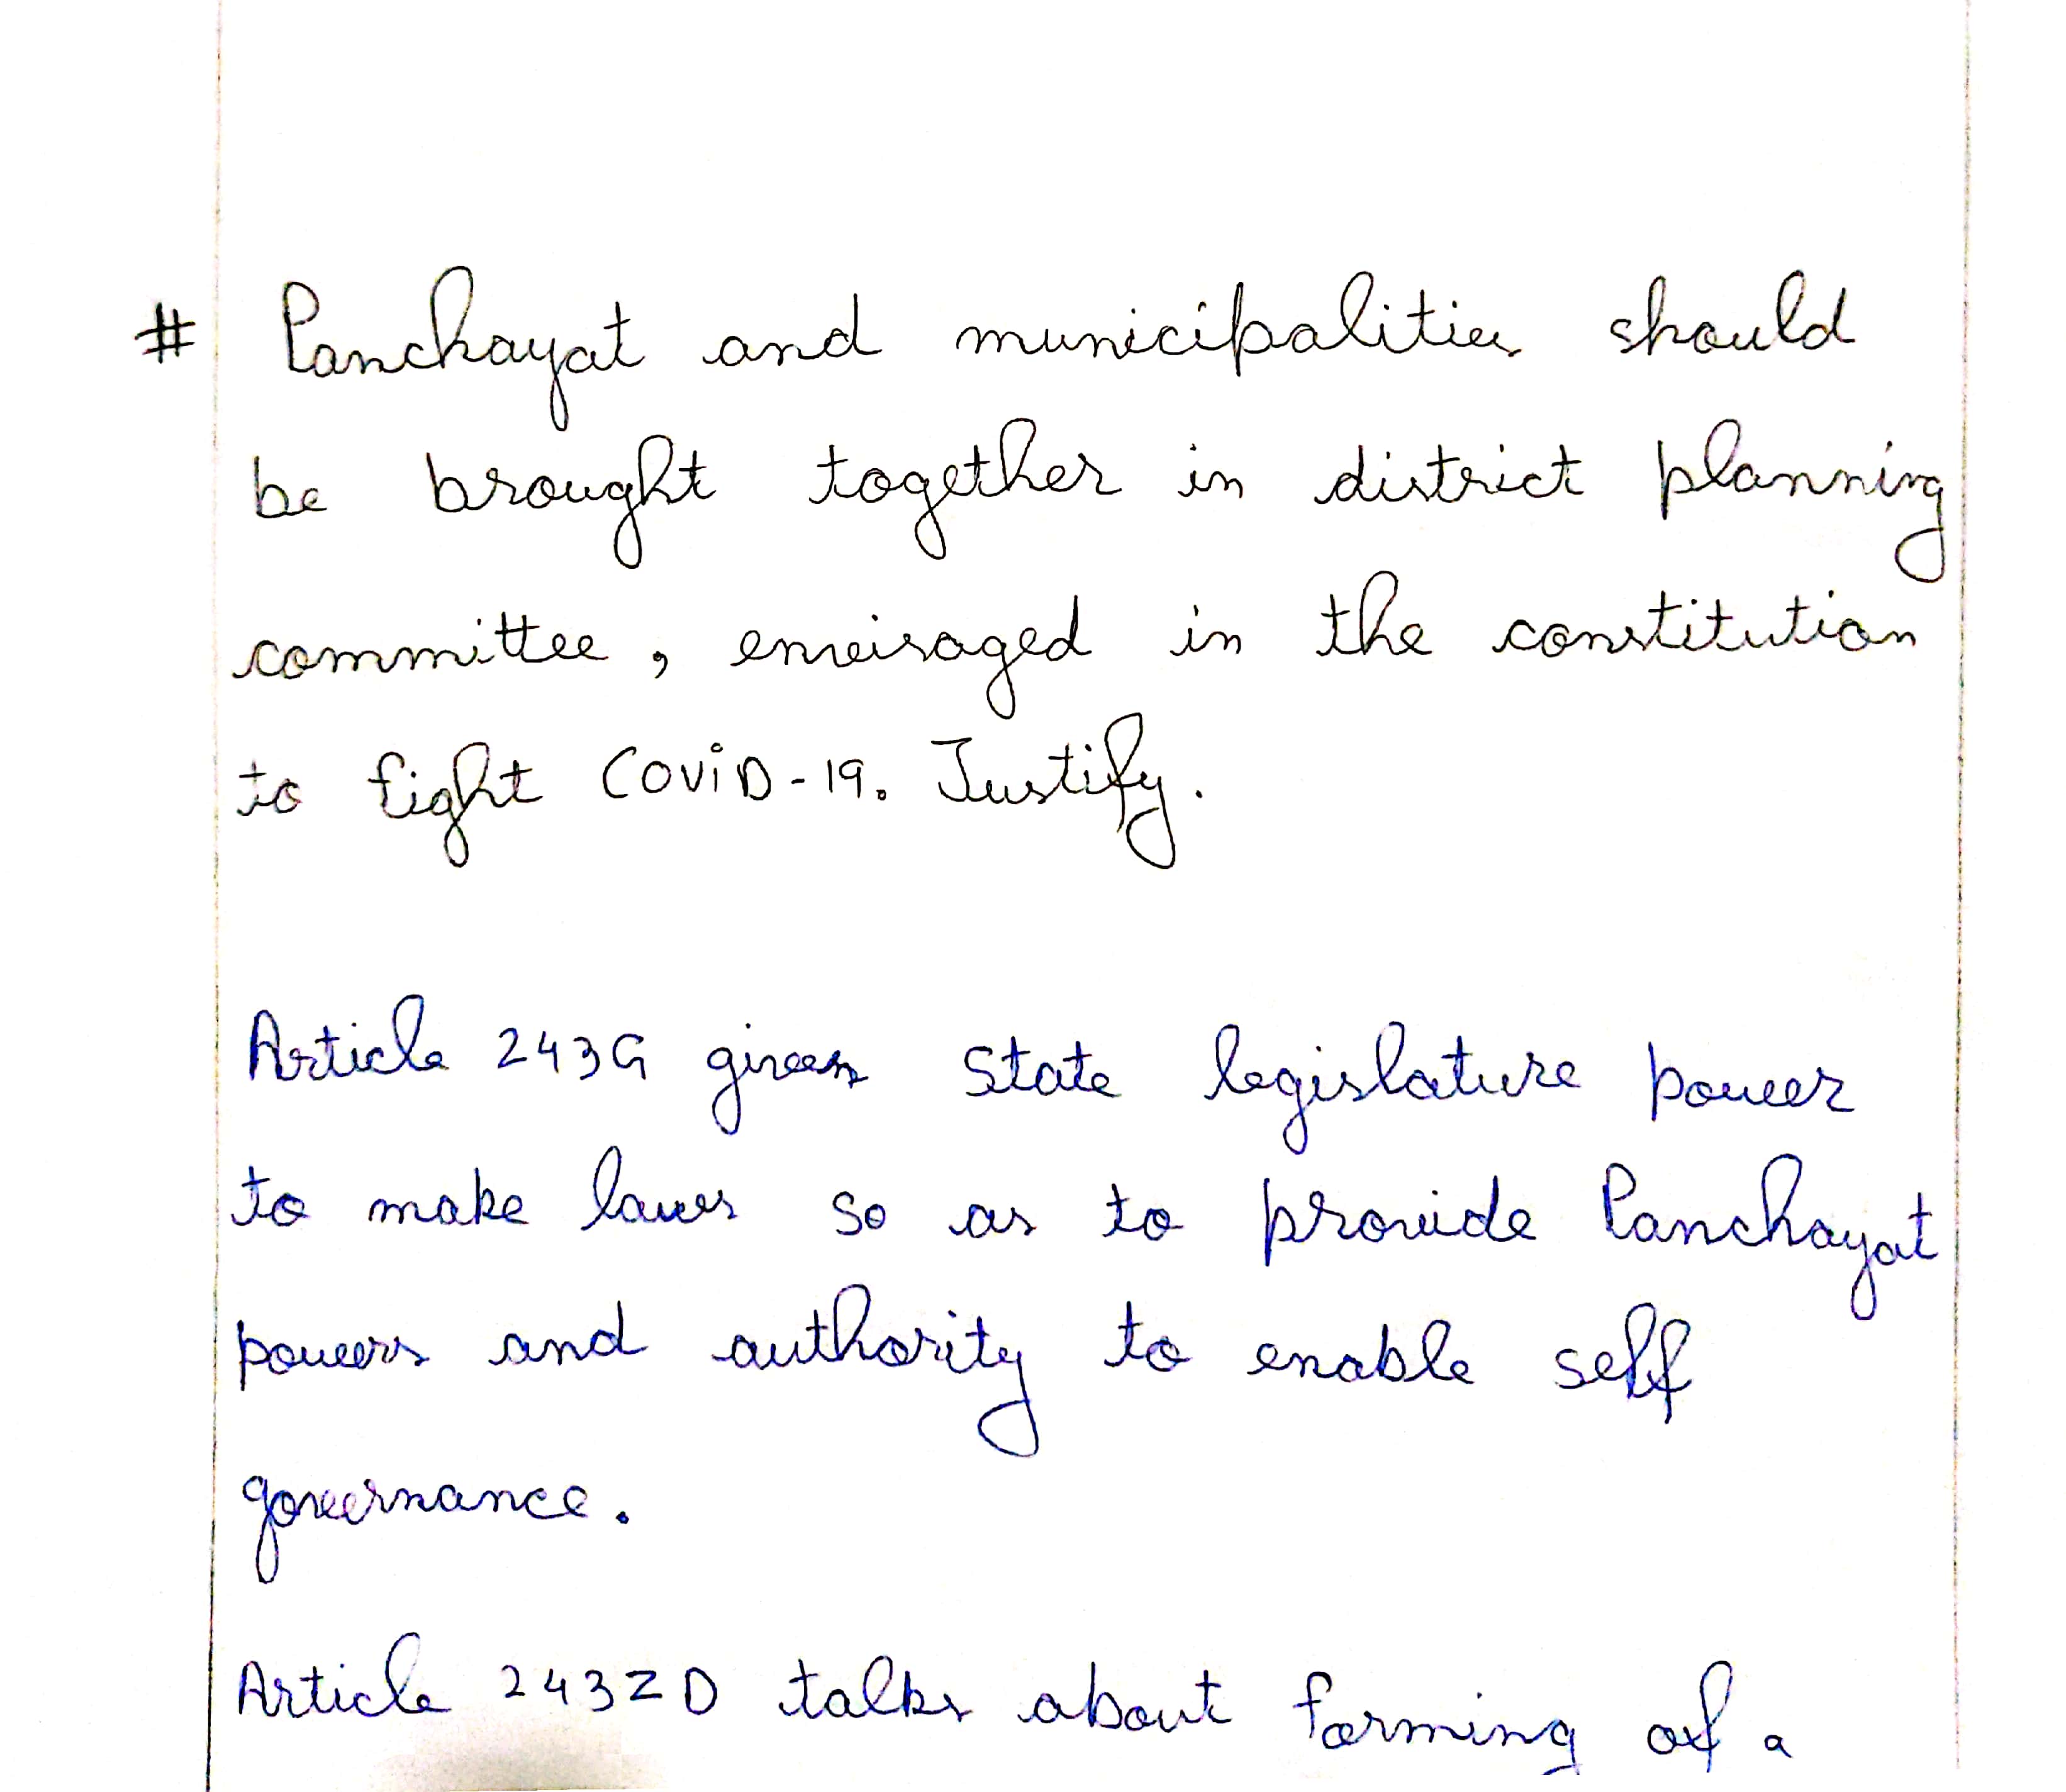 # Panchayat and municipalities should
be brought together in district planning
committee, enveisaged in the constitution
to fight COViD-19. Justify.
Article 243G gives State legislature power
to make laws so as to provide Panchayat
powers and authority to enable self
governance.
Article 243ZD talks about forming of a